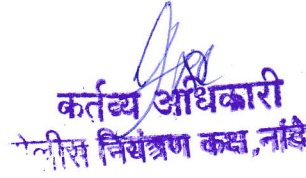 कर्तव्य अधिकारी
पोलीस नियंत्रण कक्ष,नांदे